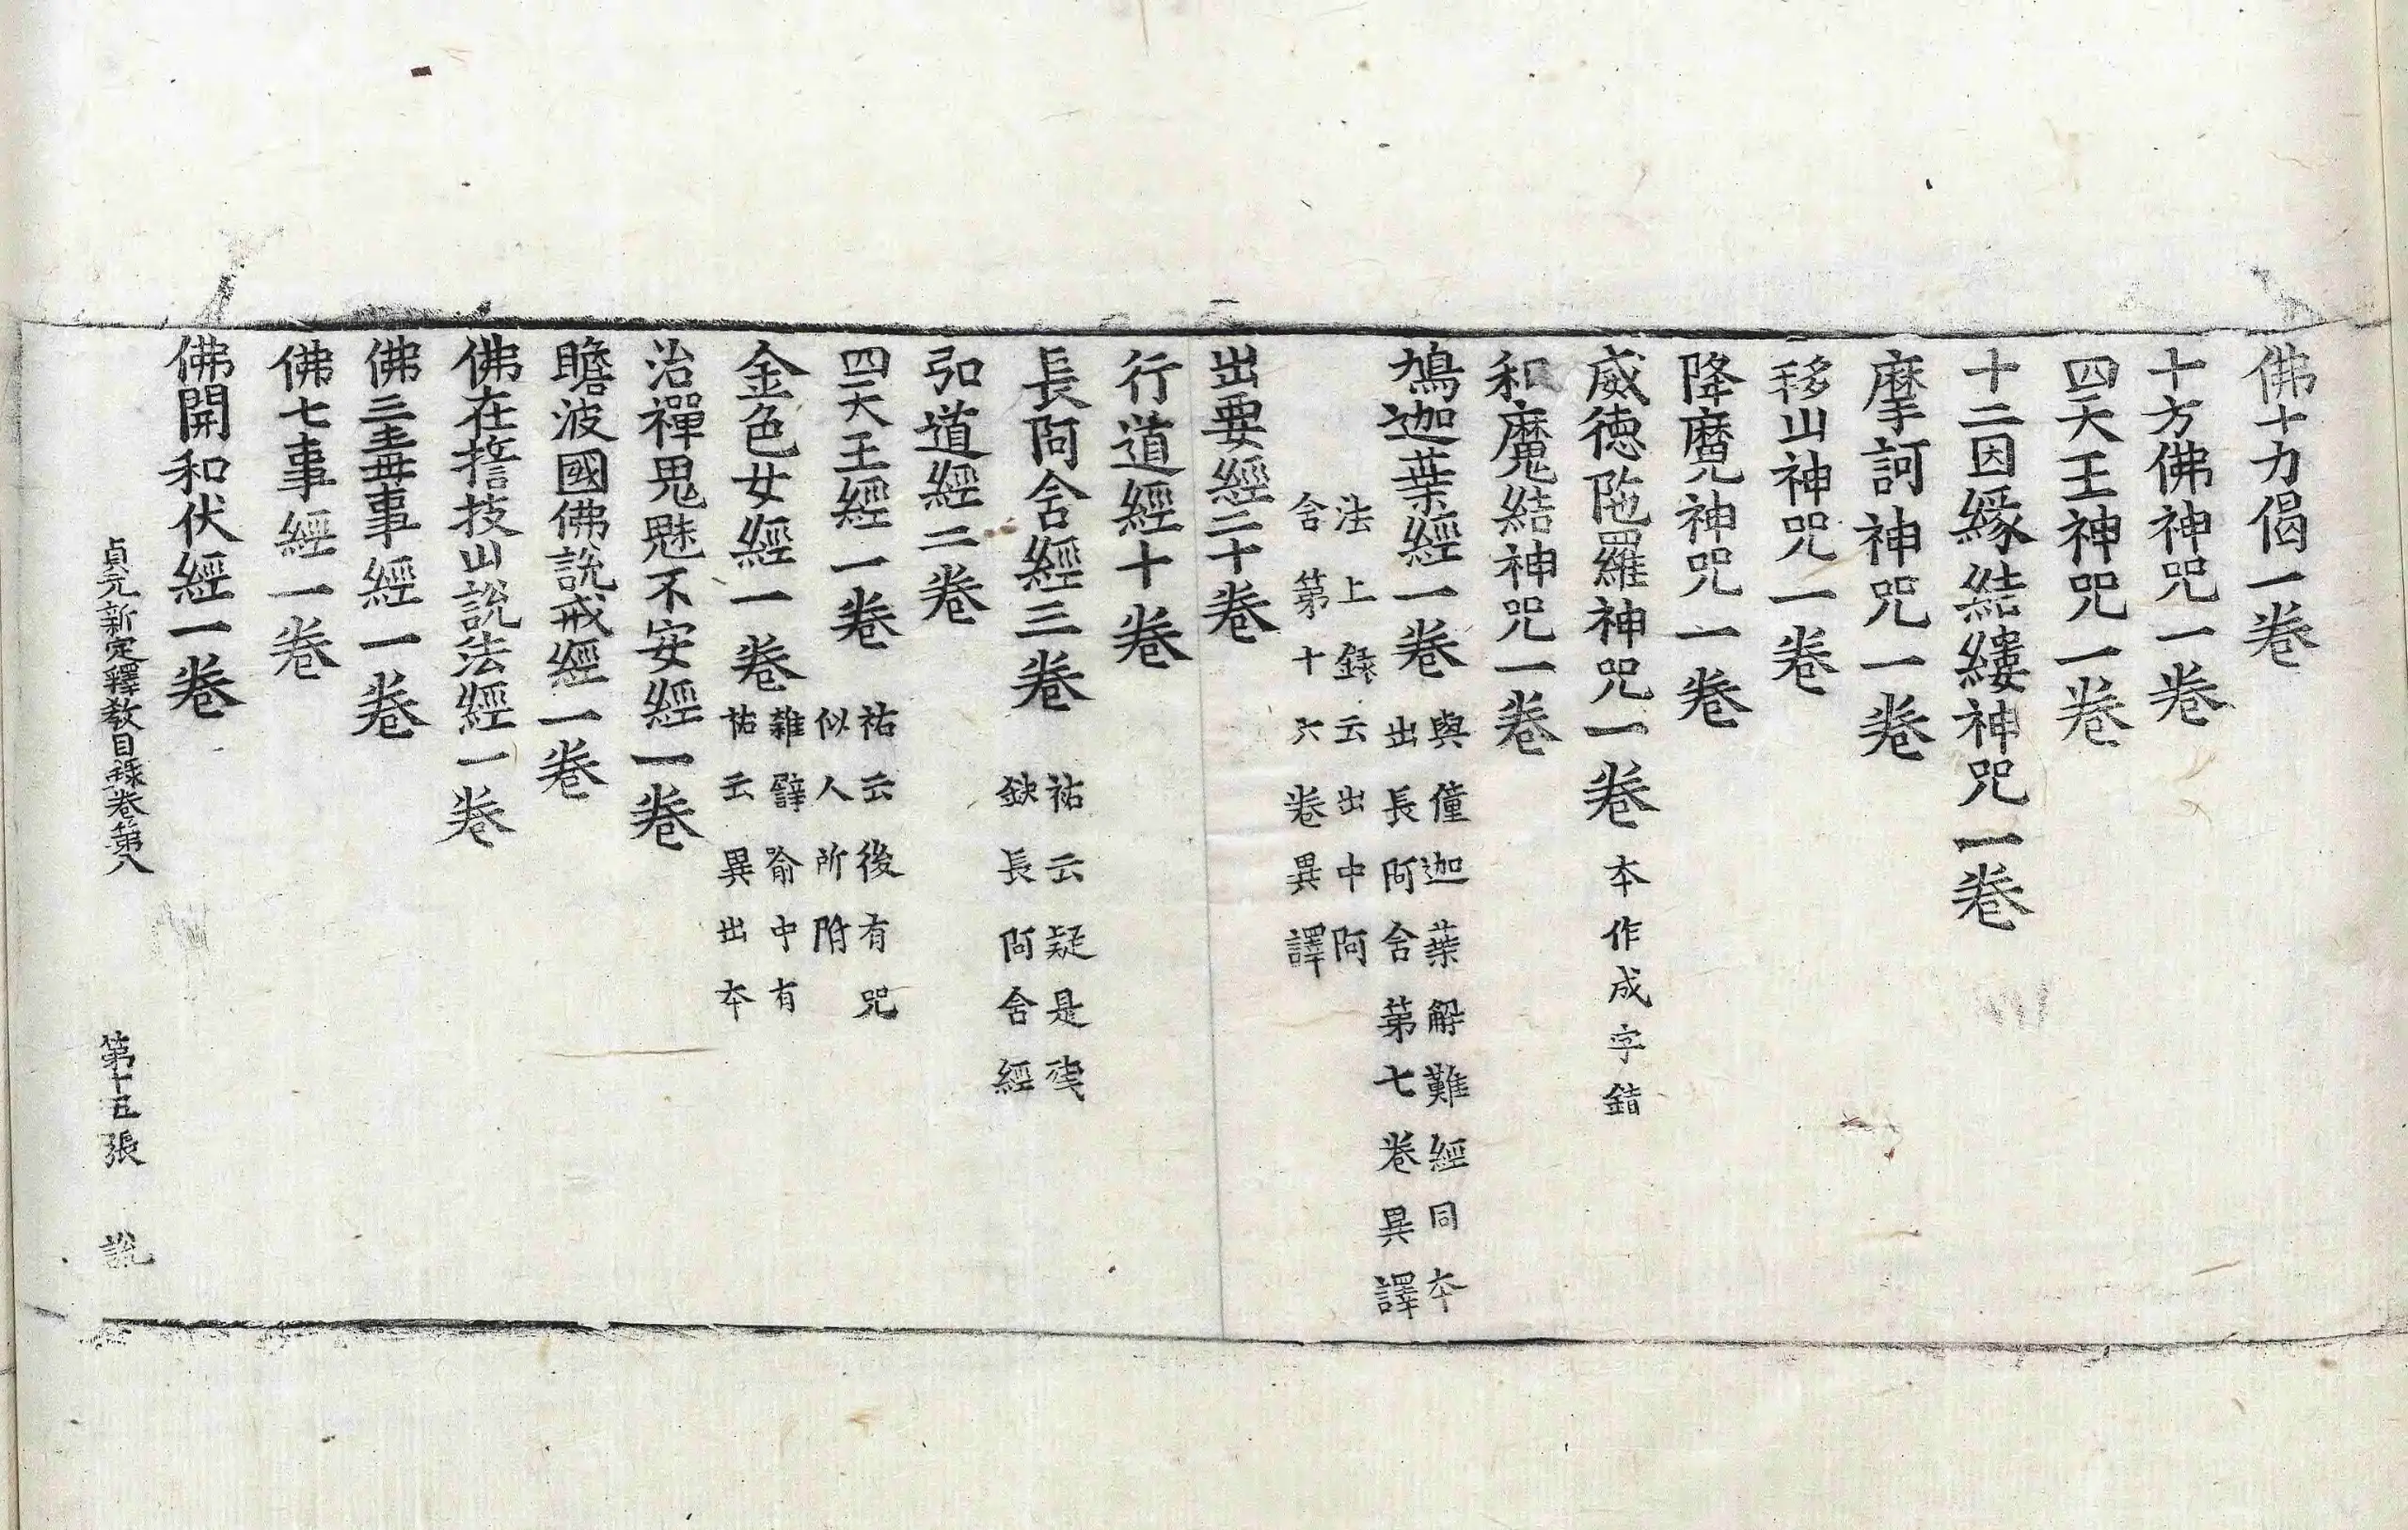 佛十力偈一卷
十方佛神咒一卷
四天王神咒一卷
十二因緣結縷神咒一卷
摩訶神咒一卷
移山神咒一卷
降魔神咒一卷
威徳陁羅神咒一卷 夲作成字錯
和魔結神咒一卷
鳩迦葉經一卷 與僮迦葉解難經同夲
出長阿含第七卷異譯
法上録云出中阿
含第十六卷異譯
出要經二十卷
行道經十卷
長阿含經三卷 祐云疑是殘
缺長阿含經
弘道經二卷
四天王經一卷 祐云後有咒
似人所附
金色女經一卷 雜譬喻中有
祐云異出夲
治禪鬼魅不安經一卷
瞻波國佛說戒經一卷
佛在誓枝山說法經一卷
佛三毒事經一卷
佛七事經一卷
佛開和伏經一卷
貞元新定釋教目錄卷第八 第十五張 說